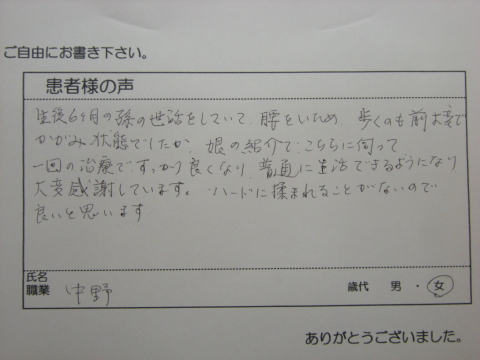 ご自由にお書き下さい。
患者様の声
生後6ヶ月の孫の世話をしていて、腰をいため、歩くのも前大変で
かがみ状態でしたが、娘の紹介でこちらに伺って
一回の治療で、すっかり良くなり、普通に生活できるようになり
大変感謝しています。ハードに揉まれることがないので
良いと思います
氏名
職業 中野 歳代 男・女
ありがとうございました。